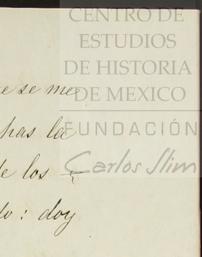 CENTRO DE
ESTUDIOS
DE HISTORIA
DE MEXICO
FUNDACIÓN
Carlos Slim
se me
has la
de los
do: doy